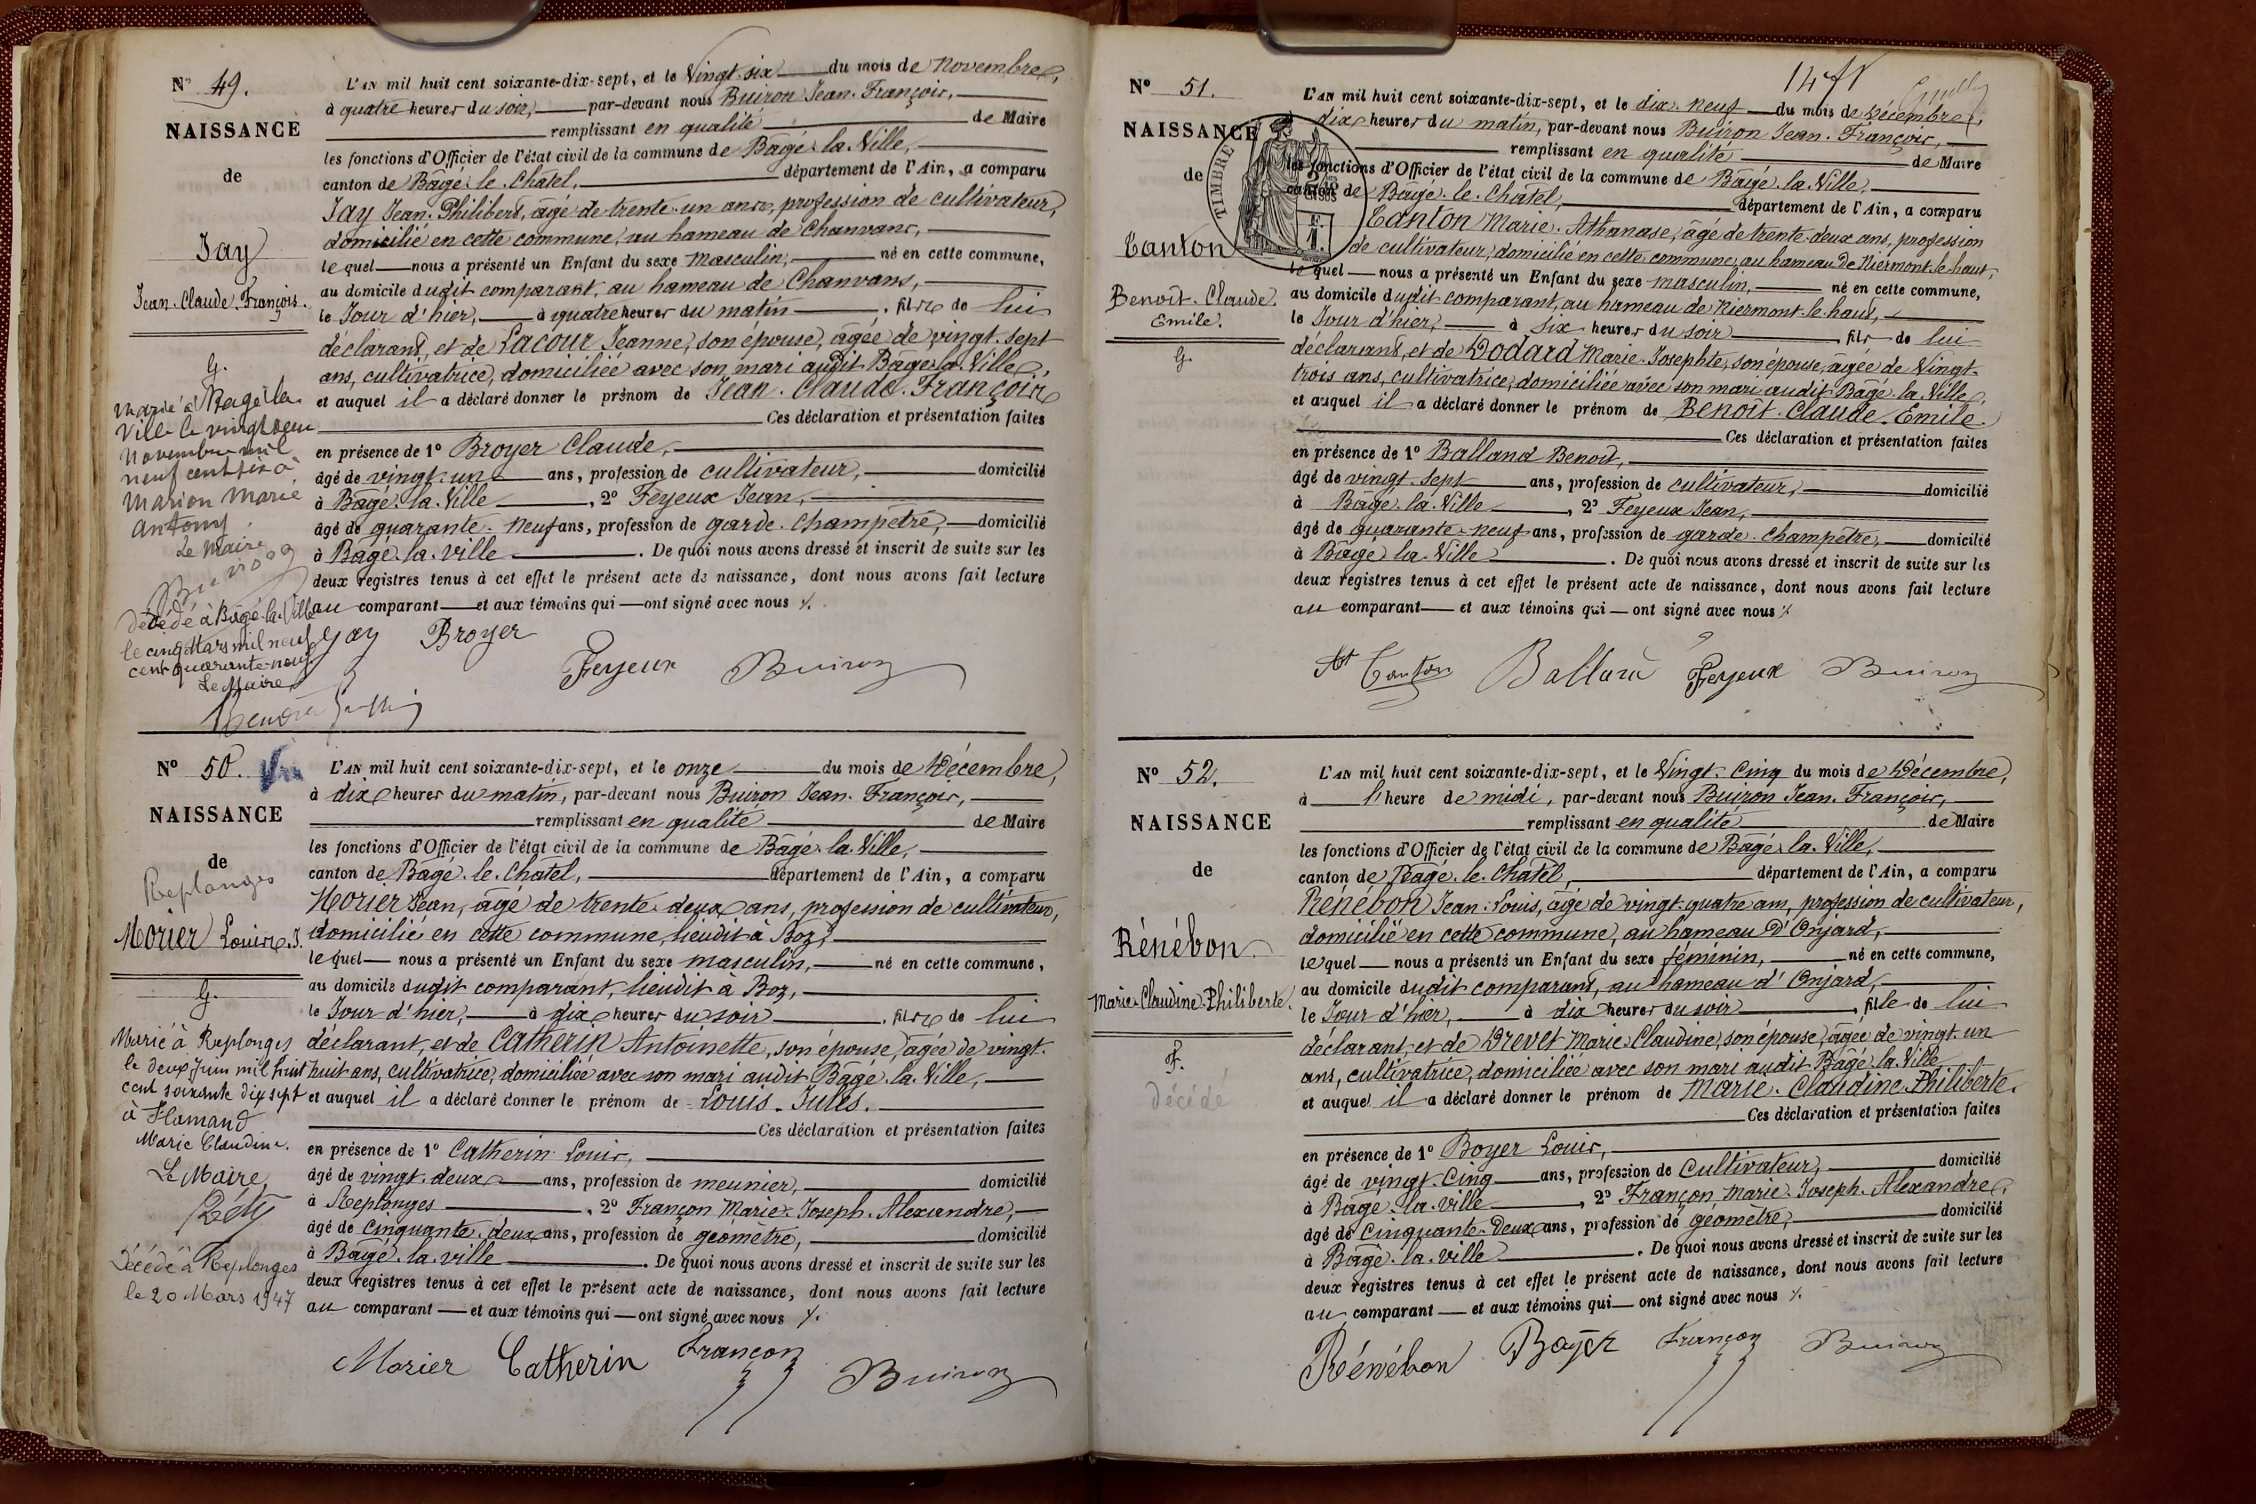 N° 49.
NAISSANCE
de
Jay
Jean-Claude-François.
G.
Marié à Bagé la
Ville le vingt deux
Novembre mil
neuf cent six à
Marion Marie
Antony
Le Maire
Buiron
Décédé à Bâgé-la-Ville
le cinq Mars mil neuf
cent quarante-neuf
Le Maire
L'AN mil huit cent soixante-dix-sept, et le Vingt-six du mois de Novembre,
à quatre heures du soir, par-devant nous Buiron Jean-François,
remplissant en qualité de Maire
les fonctions d'Officier de l'état civil de la commune de Bâgé-la-Ville,
canton de Bâgé-le-Châtel, département de l'Ain, a comparu
Jay Jean-Philibert, âgé de trente-un ans, profession de cultivateur,
domicilié en cette commune, au hameau de Chanvans,
lequel nous a présenté un Enfant du sexe masculin, né en cette commune,
au domicile dudit comparant, au hameau de Chanvans,
le Jour d'hier, à quatre heures du matin, fils de lui
déclarant, et de Lacour Jeanne, son épouse, âgée de vingt-sept
ans, cultivatrice, domiciliée avec son mari audit Bâgé-la-Ville,
et auquel il a déclaré donner le prénom de Jean-Claude-François
Ces déclaration et présentation faites
en présence de 1° Broyer Claude,
âgé de vingt-un ans, profession de cultivateur, domicilié
à Bâgé-la-Ville, 2° Feyeux Jean,
âgé de quarante-neuf ans, profession de garde-champêtre, domicilié
à Bâgé-la-ville. De quoi nous avons dressé et inscrit de suite sur les
deux registres tenus à cet effet le présent acte de naissance, dont nous avons fait lecture
au comparant et aux témoins qui ont signé avec nous ./.
Jay Broyer
Feyeux Buiron
N° 50.
NAISSANCE
de
Replonges
Morier Louis-J.
G.
Marié à Replonges
le deux Juin mil huit
cent soixante dix sept
à Flamand
Marie Claudine.
Le Maire,
Décédé à Replonges
le 20 Mars 1947
L'AN mil huit cent soixante-dix-sept, et le onze du mois de Décembre,
à dix heures du matin, par-devant nous Buiron Jean-François,
remplissant en qualité de Maire
les fonctions d'Officier de l'état civil de la commune de Bâgé-la-Ville,
canton de Bâgé-le-Châtel, département de l'Ain, a comparu
Morier Jean, âgé de trente-deux ans, profession de cultivateur,
domicilié en cette commune, lieudit à Boz,
lequel nous a présenté un Enfant du sexe masculin, né en cette commune,
au domicile dudit comparant, lieudit à Boz,
le Jour d'hier, à dix heures du soir, fils de lui
déclarant, et de Catherin Antoinette, son épouse, âgée de vingt-
huit ans, cultivatrice, domiciliée avec son mari audit Bâgé-la-Ville,
et auquel il a déclaré donner le prénom de Louis-Jules.
Ces déclaration et présentation faites
en présence de 1° Catherin Louis,
âgé de vingt-deux ans, profession de meunier, domicilié
à Replonges, 2° Françon Marie-Joseph-Alexandre,
âgé de cinquante-deux ans, profession de géomètre, domicilié
à Bâgé-la-ville. De quoi nous avons dressé et inscrit de suite sur les
deux registres tenus à cet effet le présent acte de naissance, dont nous avons fait lecture
au comparant et aux témoins qui ont signé avec nous ./.
Morier Catherin Françon
Buiron
N° 51.
NAISSANCE
de
TIMBRE
Tanton
Benoît-Claude-
Emile.
G.
L'AN mil huit cent soixante-dix-sept, et le dix-neuf du mois de Décembre,
à dix heures du matin, par-devant nous Buiron Jean-François,
remplissant en qualité de Maire
les fonctions d'Officier de l'état civil de la commune de Bâgé-la-Ville,
canton de Bâgé-le-Châtel, département de l'Ain, a comparu
Tanton Marie-Athanase, âgé de trente-deux ans, profession
de cultivateur, domicilié en cette commune, au hameau de Niermont-le-haut,
lequel nous a présenté un Enfant du sexe masculin, né en cette commune,
au domicile dudit comparant, au hameau de Niermont-le-haut,
le Jour d'hier, à six heures du soir, fils de lui
déclarant, et de Dodard Marie-Josephte, son épouse, âgée de Vingt-
trois ans, cultivatrice, domiciliée avec son mari audit Bâgé-la-Ville,
et auquel il a déclaré donner le prénom de Benoît-Claude-Emile.
Ces déclaration et présentation faites
en présence de 1° Balland Benoît,
âgé de vingt-sept ans, profession de cultivateur, domicilié
à Bâgé-la-Ville, 2° Feyeux Jean,
âgé de quarante-neuf ans, profession de garde-champêtre, domicilié
à Bâgé-la-Ville. De quoi nous avons dressé et inscrit de suite sur les
deux registres tenus à cet effet le présent acte de naissance, dont nous avons fait lecture
au comparant et aux témoins qui ont signé avec nous ./.
At Tanton Balland Feyeux Buiron
N° 52.
NAISSANCE
de
Rénébon
Marie-Claudine-Philiberte.
F.
décédé
L'AN mil huit cent soixante-dix-sept, et le Vingt-Cinq du mois de Décembre,
à l'heure de midi, par-devant nous Buiron Jean-François,
remplissant en qualité de Maire
les fonctions d'Officier de l'état civil de la commune de Bâgé-la-Ville,
canton de Bâgé-le-Châtel, département de l'Ain, a comparu
Rénébon Jean-Louis, âgé de vingt-quatre ans, profession de cultivateur,
domicilié en cette commune, au hameau d'Onjard,
lequel nous a présenté un Enfant du sexe féminin, né en cette commune,
au domicile dudit comparant, au hameau d'Onjard,
le Jour d'hier, à dix heures du soir, fille de lui
déclarant, et de Drevet Marie-Claudine, son épouse, âgée de vingt-un
ans, cultivatrice, domiciliée avec son mari audit Bâgé-la-Ville
et auquel il a déclaré donner le prénom de Marie-Claudine-Philiberte.
Ces déclaration et présentation faites
en présence de 1° Boyer Louis,
âgé de vingt-Cinq ans, profession de Cultivateur, domicilié
à Bâgé-la-ville, 2° Françon Marie-Joseph-Alexandre,
âgé de Cinquante-Deux ans, profession de géomètre, domicilié
à Bâgé-la-ville. De quoi nous avons dressé et inscrit de suite sur les
deux registres tenus à cet effet le présent acte de naissance, dont nous avons fait lecture
au comparant et aux témoins qui ont signé avec nous ./.
Rénébon Boyer Françon Buiron